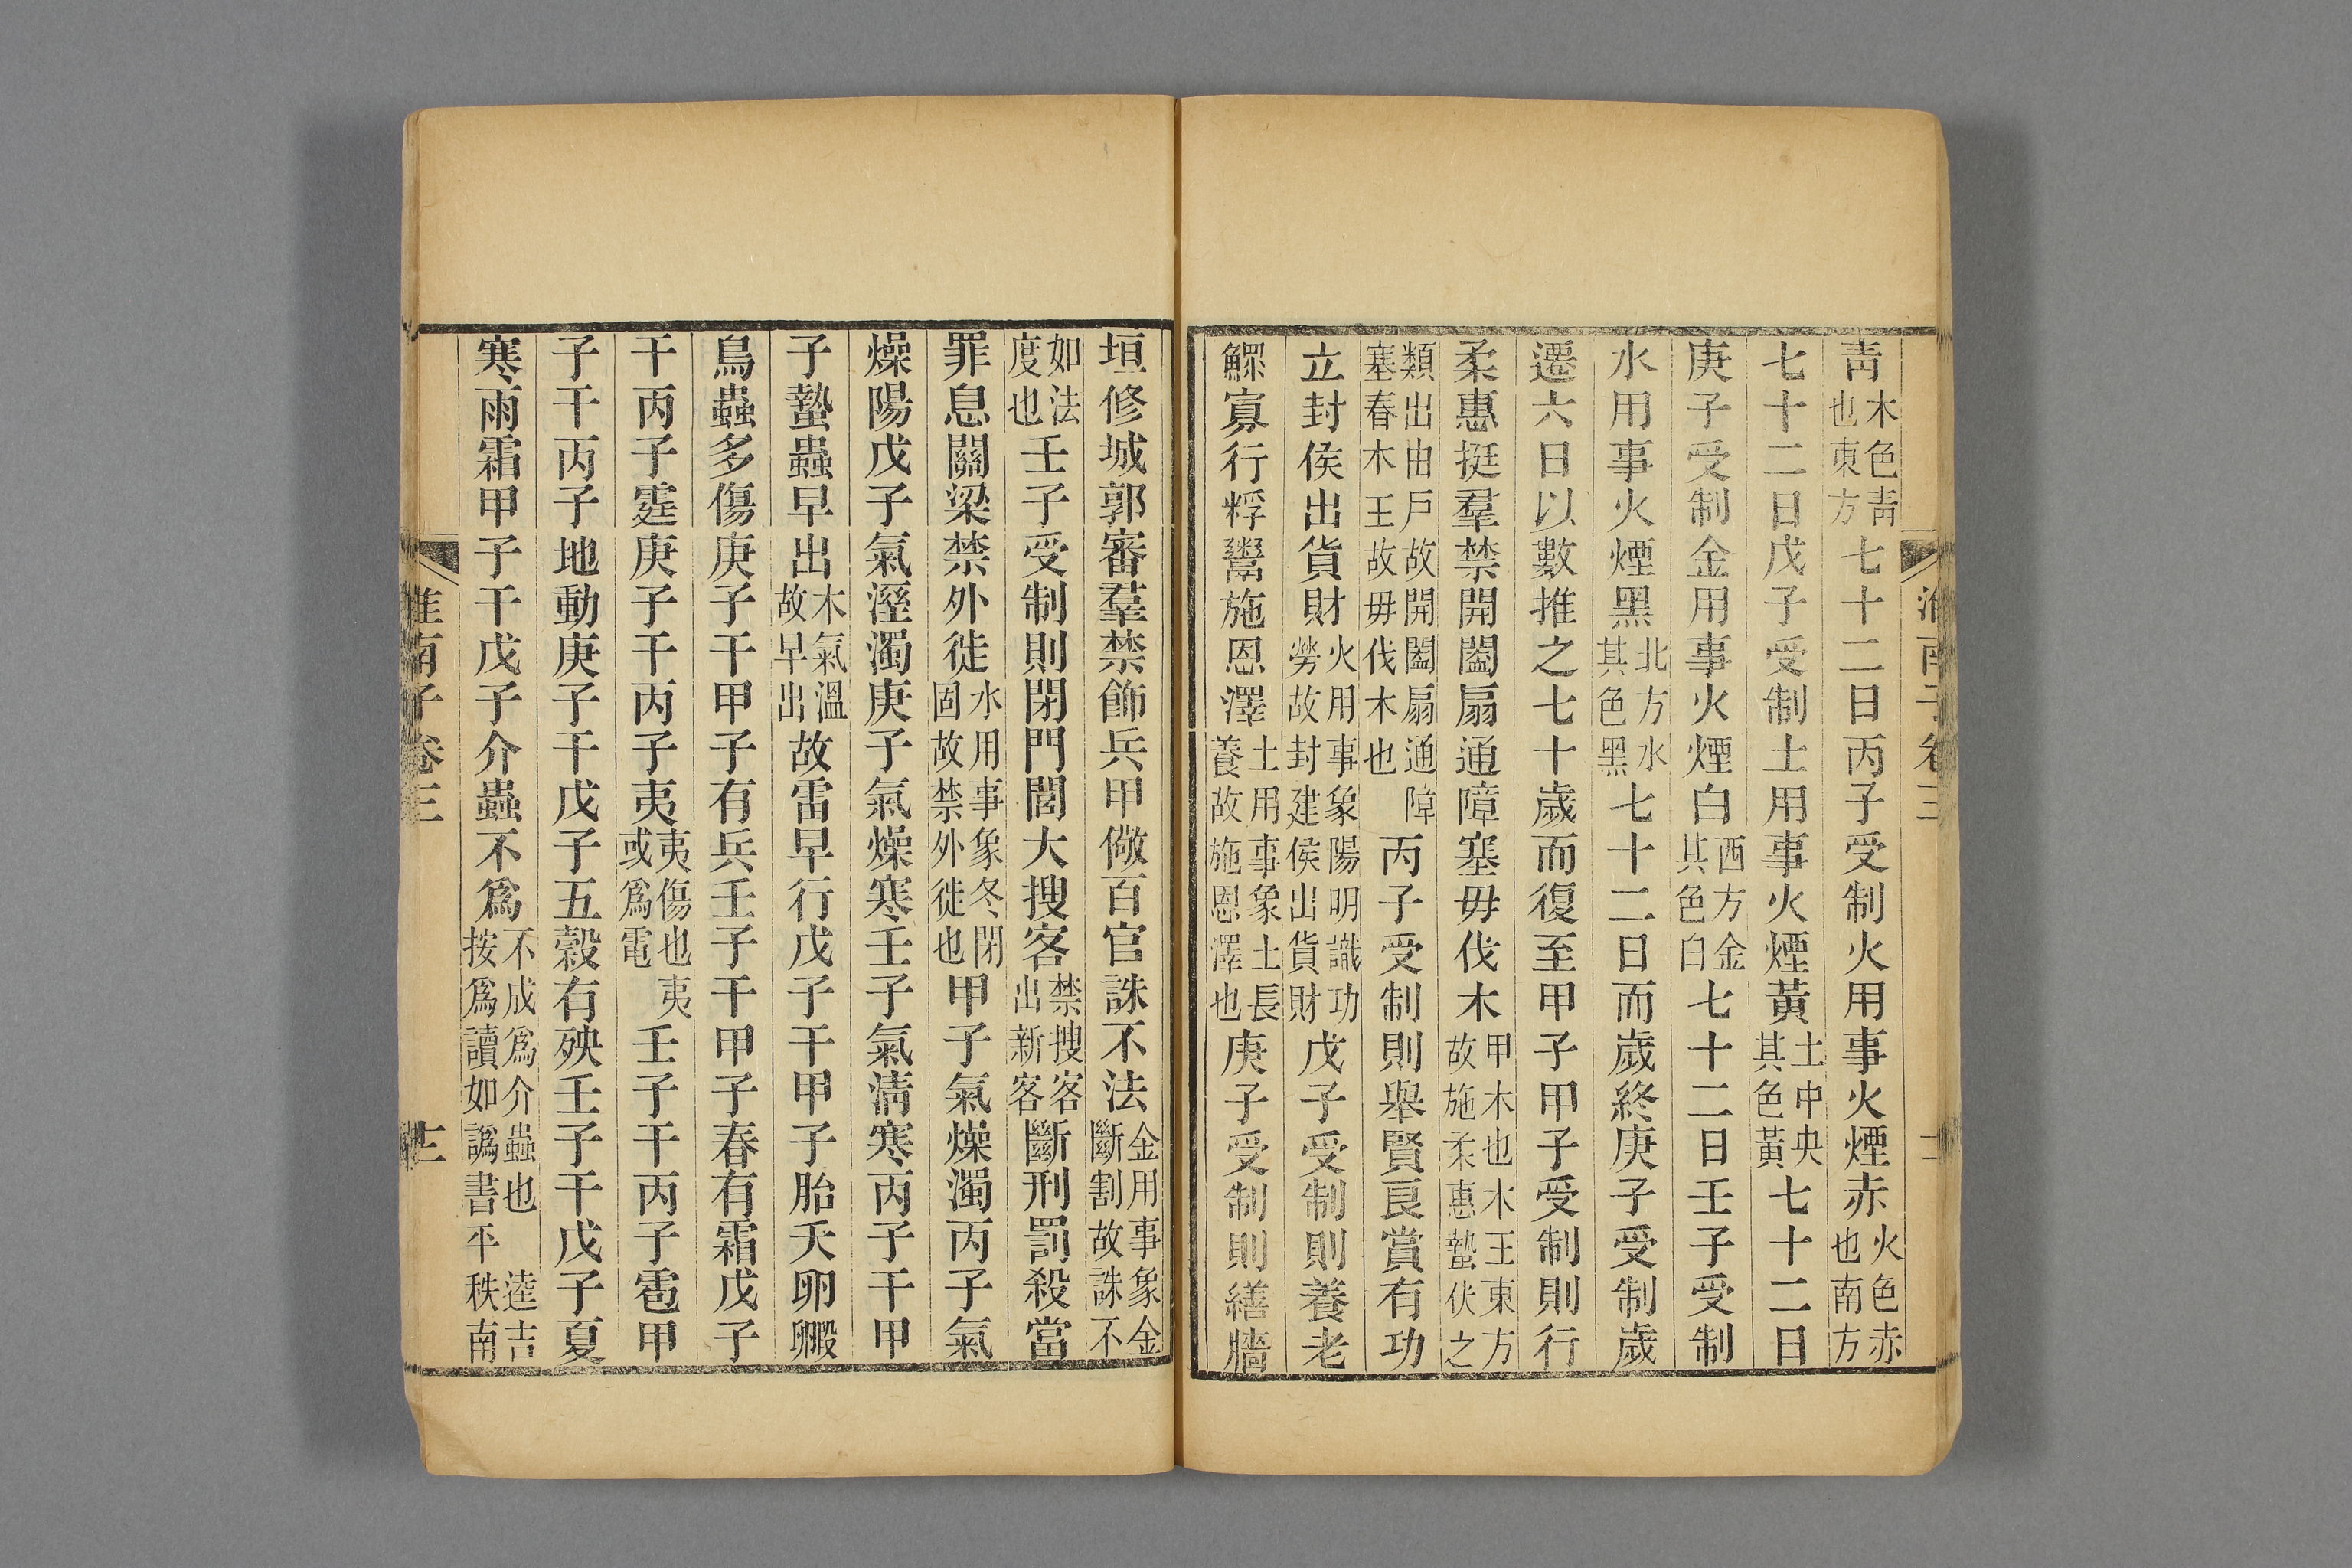 淮南子卷三 十二
靑木色靑也東方七十二日丙子受制火用事火煙赤火色赤也南方
七十二日戊子受制土用事火煙黃土中央其色黃七十二日
庚子受制金用事火煙白西方金其色白七十二日壬子受制
水用事火煙黑北方水其色黑七十二日而歲終庚子受制歲
遷六日以數推之七十歲而復至甲子甲子受制則行
柔惠挺羣禁開闔扇通障塞毋伐木甲木也木王東方故施柔惠蟄伏之
類出由戸故開闔扇通障塞春木王故毋伐木也丙子受制則舉賢良賞有功
立封侯出貨財火用事象陽明識功勞故封建侯出貨財戊子受制則養老
鰥寡行粰鬻施恩澤土用事象土長養故施恩澤也庚子受制則繕牆
垣修城郭審羣禁飾兵甲儆百官誅不法金用事象金斷割故誅不
如法度也壬子受制則閉門閭大搜客禁搜客出新客斷刑罰殺當
罪息關梁禁外徙水用事象冬閉固故禁外徙也甲子氣燥濁丙子氣
燥陽戊子氣溼濁庚子氣燥寒壬子氣淸寒丙子干甲
子蟄蟲早出木氣溫故早出故雷早行戊子干甲子胎夭卵毈
鳥蟲多傷庚子干甲子有兵壬子干甲子春有霜戊子
干丙子霆庚子干丙子夷夷傷也夷或爲電壬子干丙子雹甲
子干丙子地動庚子干戊子五穀有殃壬子干戊子夏
寒雨霜甲子干戊子介蟲不爲不成爲介蟲也逵吉按爲讀如譌書平秩南
淮南子卷三 十二